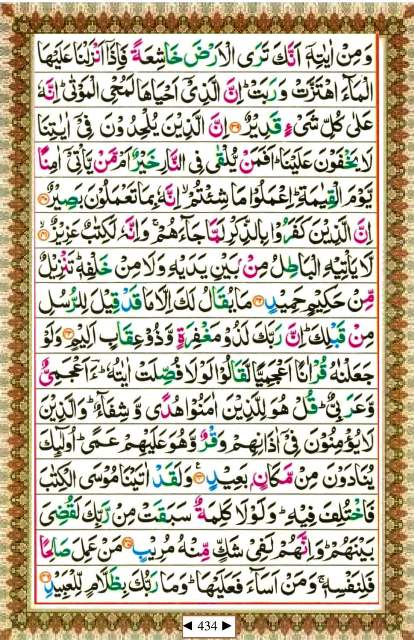 وَمِنْ اٰيٰتِهٖۤ اَنَّكَ تَرَى الْاَرْضَ خَاشِعَةً فَاِذَاۤ اَنْزَلْنَا عَلَيْهَا
الْمَآءَ اهْتَزَّتْ وَرَبَتْ ؕ اِنَّ الَّذِيْۤ اَحْيَاهَا لَمُحْيِ الْمَوْتٰى ؕ اِنَّهٗ
عَلٰى كُلِّ شَيْءٍ قَدِيْرٌ ۟۳۹ اِنَّ الَّذِيْنَ يُلْحِدُوْنَ فِيْۤ اٰيٰتِنَا
لَا يَخْفَوْنَ عَلَيْنَا ؕ اَفَمَنْ يُّلْقٰى فِي النَّارِ خَيْرٌ اَمْ مَّنْ يَّاْتِيْۤ اٰمِنًا
يَّوْمَ الْقِيٰمَةِ ؕ اِعْمَلُوْا مَا شِئْتُمْ ۙ اِنَّهٗ بِمَا تَعْمَلُوْنَ بَصِيْرٌ ۟۴۰
اِنَّ الَّذِيْنَ كَفَرُوْا بِالذِّكْرِ لَمَّا جَآءَهُمْ ۚ وَاِنَّهٗ لَكِتٰبٌ عَزِيْزٌ ۟۴۱
لَّا يَاْتِيْهِ الْبَاطِلُ مِنْۢ بَيْنِ يَدَيْهِ وَلَا مِنْ خَلْفِهٖ ؕ تَنْزِيْلٌ
مِّنْ حَكِيْمٍ حَمِيْدٍ ۟۴۲ مَا يُقَالُ لَكَ اِلَّا مَا قَدْ قِيْلَ لِلرُّسُلِ
مِنْ قَبْلِكَ ؕ اِنَّ رَبَّكَ لَذُوْ مَغْفِرَةٍ وَّذُوْ عِقَابٍ اَلِيْمٍ ۟۴۳ وَلَوْ
جَعَلْنٰهُ قُرْاٰنًا اَعْجَمِيًّا لَّقَالُوْا لَوْلَا فُصِّلَتْ اٰيٰتُهٗ ؕ ءَاَعْجَمِيٌّ
وَّعَرَبِيٌّ ؕ قُلْ هُوَ لِلَّذِيْنَ اٰمَنُوْا هُدًى وَّشِفَآءٌ ؕ وَالَّذِيْنَ
لَا يُؤْمِنُوْنَ فِيْۤ اٰذَانِهِمْ وَقْرٌ وَّهُوَ عَلَيْهِمْ عَمًى ؕ اُولٰٓئِكَ
يُنَادَوْنَ مِنْ مَّكَانٍۭ بَعِيْدٍ ۟۴۴ وَلَقَدْ اٰتَيْنَا مُوْسَى الْكِتٰبَ
فَاخْتُلِفَ فِيْهِ ؕ وَلَوْلَا كَلِمَةٌ سَبَقَتْ مِنْ رَّبِّكَ لَقُضِيَ
بَيْنَهُمْ ؕ وَاِنَّهُمْ لَفِيْ شَكٍّ مِّنْهُ مُرِيْبٍ ۟۴۵ مَنْ عَمِلَ صَالِحًا
فَلِنَفْسِهٖ ۚ وَمَنْ اَسَآءَ فَعَلَيْهَا ؕ وَمَا رَبُّكَ بِظَلَّامٍ لِّلْعَبِيْدِ ۟۴۶
◄ 434 ►